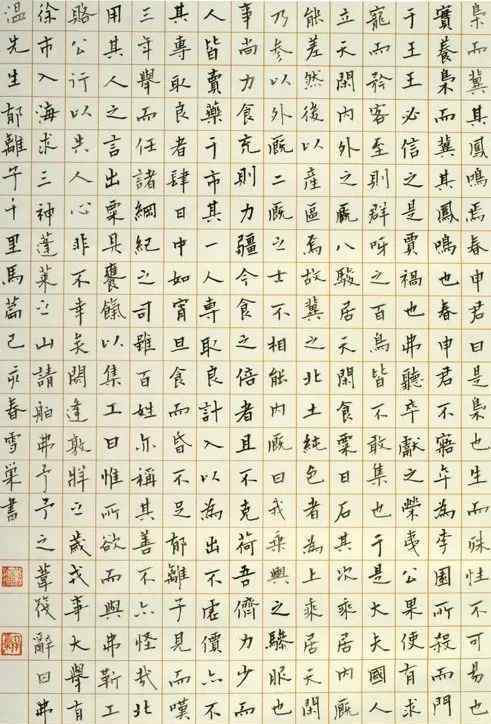 梟而冀其鳳鳴焉春申君曰是梟也生而殊性不可易也
實養梟而冀其鳳鳴也春申君不寤卒為李園所殺而門
于王王必信之是賈禍也弗聽卒獻之榮夷公果使有求
寵而矜客至則群呀之百鳥皆不敢集也于是大夫國人
立天閑內外之廄八駿居天閑食粟日石其次乘居內廄
能差然後以產區焉故冀之北土純色者為上乘居天閑
乃參以外廄二廄之士不相能內廄曰我乘輿之驂服也
事尚力食充則力彊今食之倍者且不克荷吾儕力少而
人皆賣藥于市其一人專取良計入以為出不虛價亦不
其專取良者肆日中如宵旦食而昏不足郁離子見而嘆
三年舉而任諸綱紀之司雖百姓亦稱其善不亦怪哉北
用其人之言出粟具饔餼以集工曰惟所欲而與弗靳工
賂公行以失人心非不幸矣閼逢敦牂之歲戎事大舉有
徐市入海求三神蓬萊之山請舶弗予予之葦筏辭曰弗
溫先生郁離子千里馬篇己亥春雪巢書